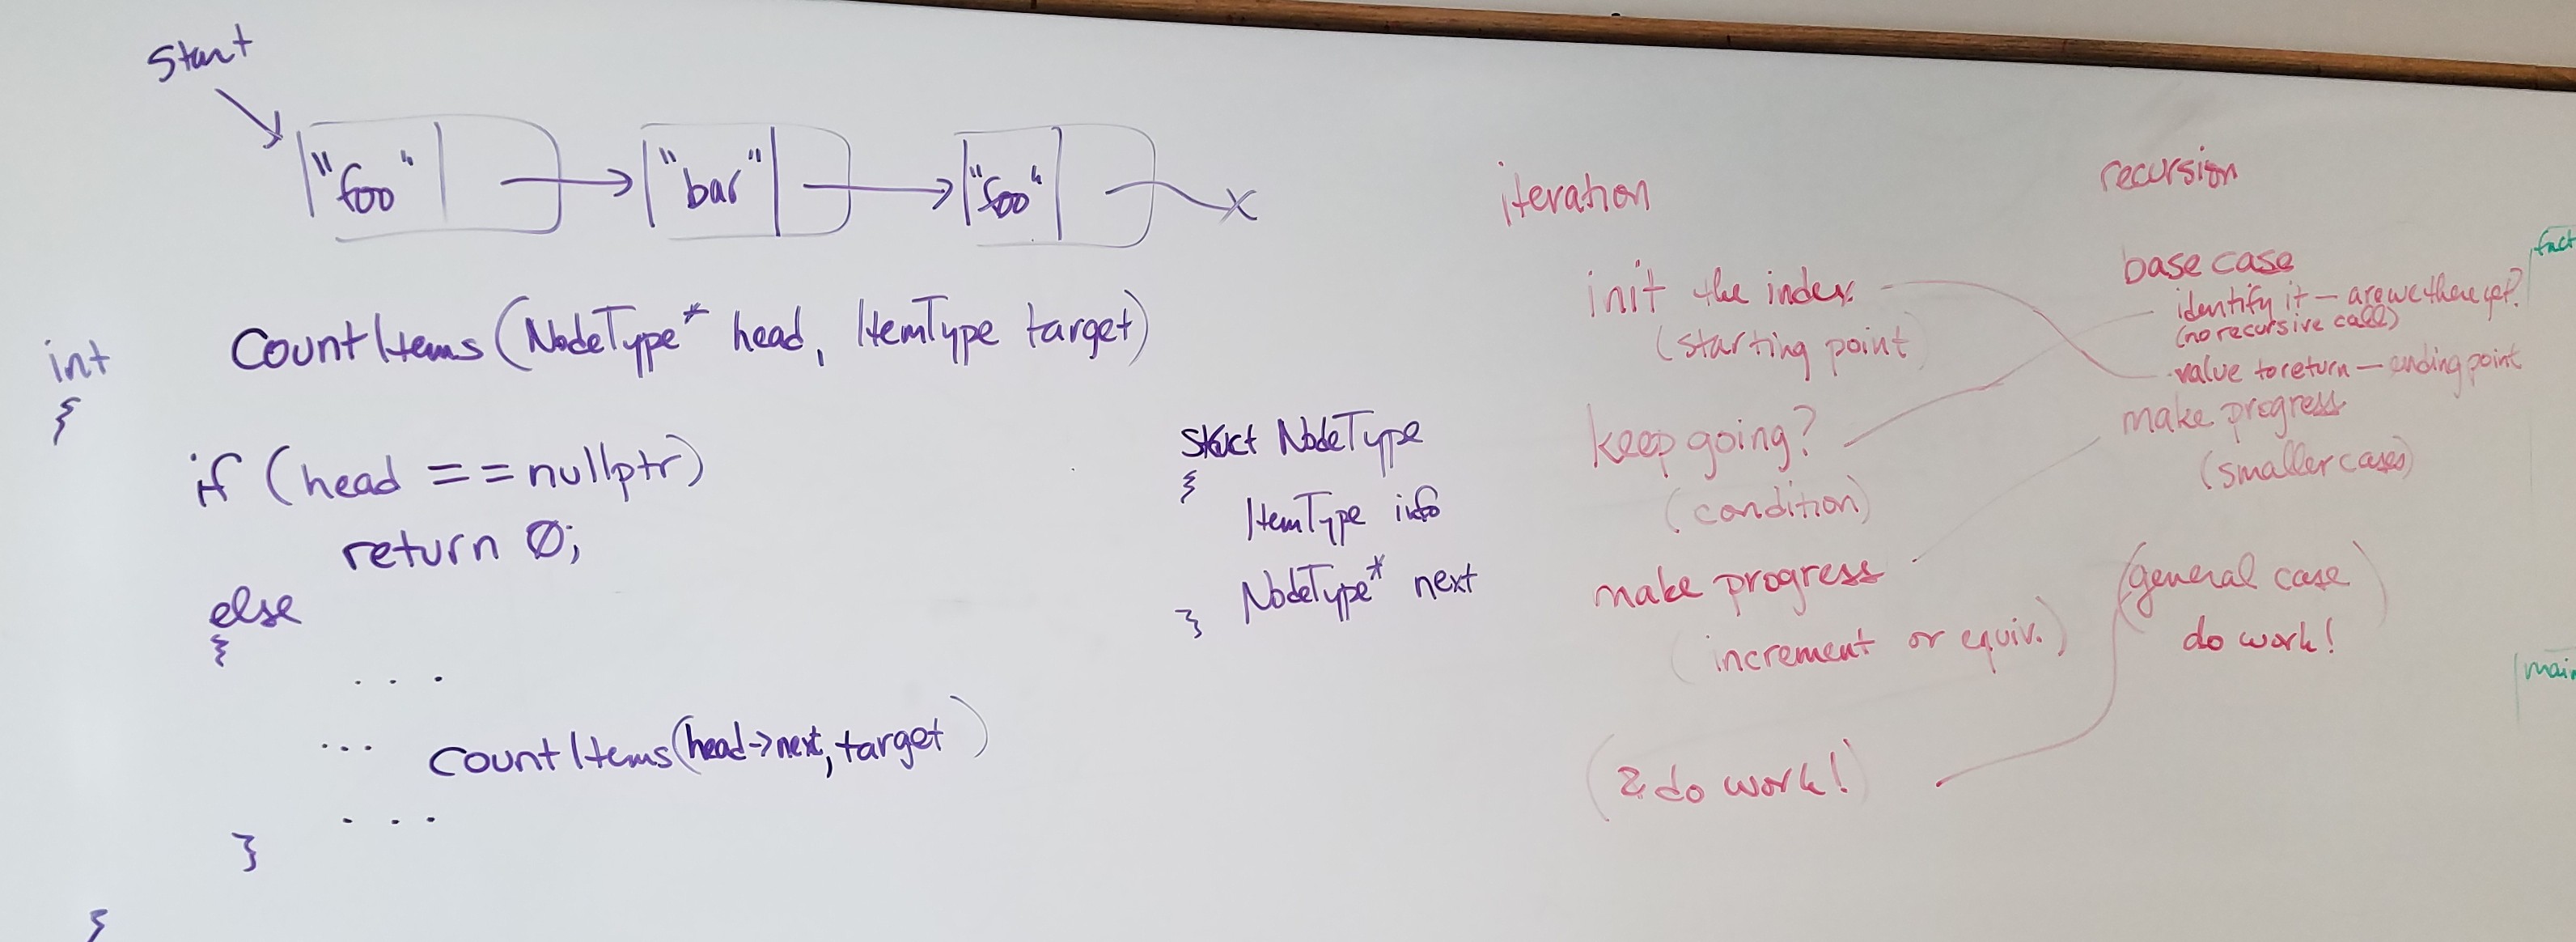 Start
"foo" "bar" "foo" X
int CountItems(NodeType* head, ItemType target)
{
if (head == nullptr)
return 0;
else
{
. . .
... CountItems(head->next, target)
. . .
}
}
struct NodeType
{
ItemType info
NodeType* next
}
iteration
init the index
(starting point)
keep going?
(condition)
make progress
(increment or equiv.)
(& do work!)
recursion
base case
identify it — are we there yet?
(no recursive call)
value to return — ending point
make progress
(smaller cases)
(general case
do work!)
fact
main